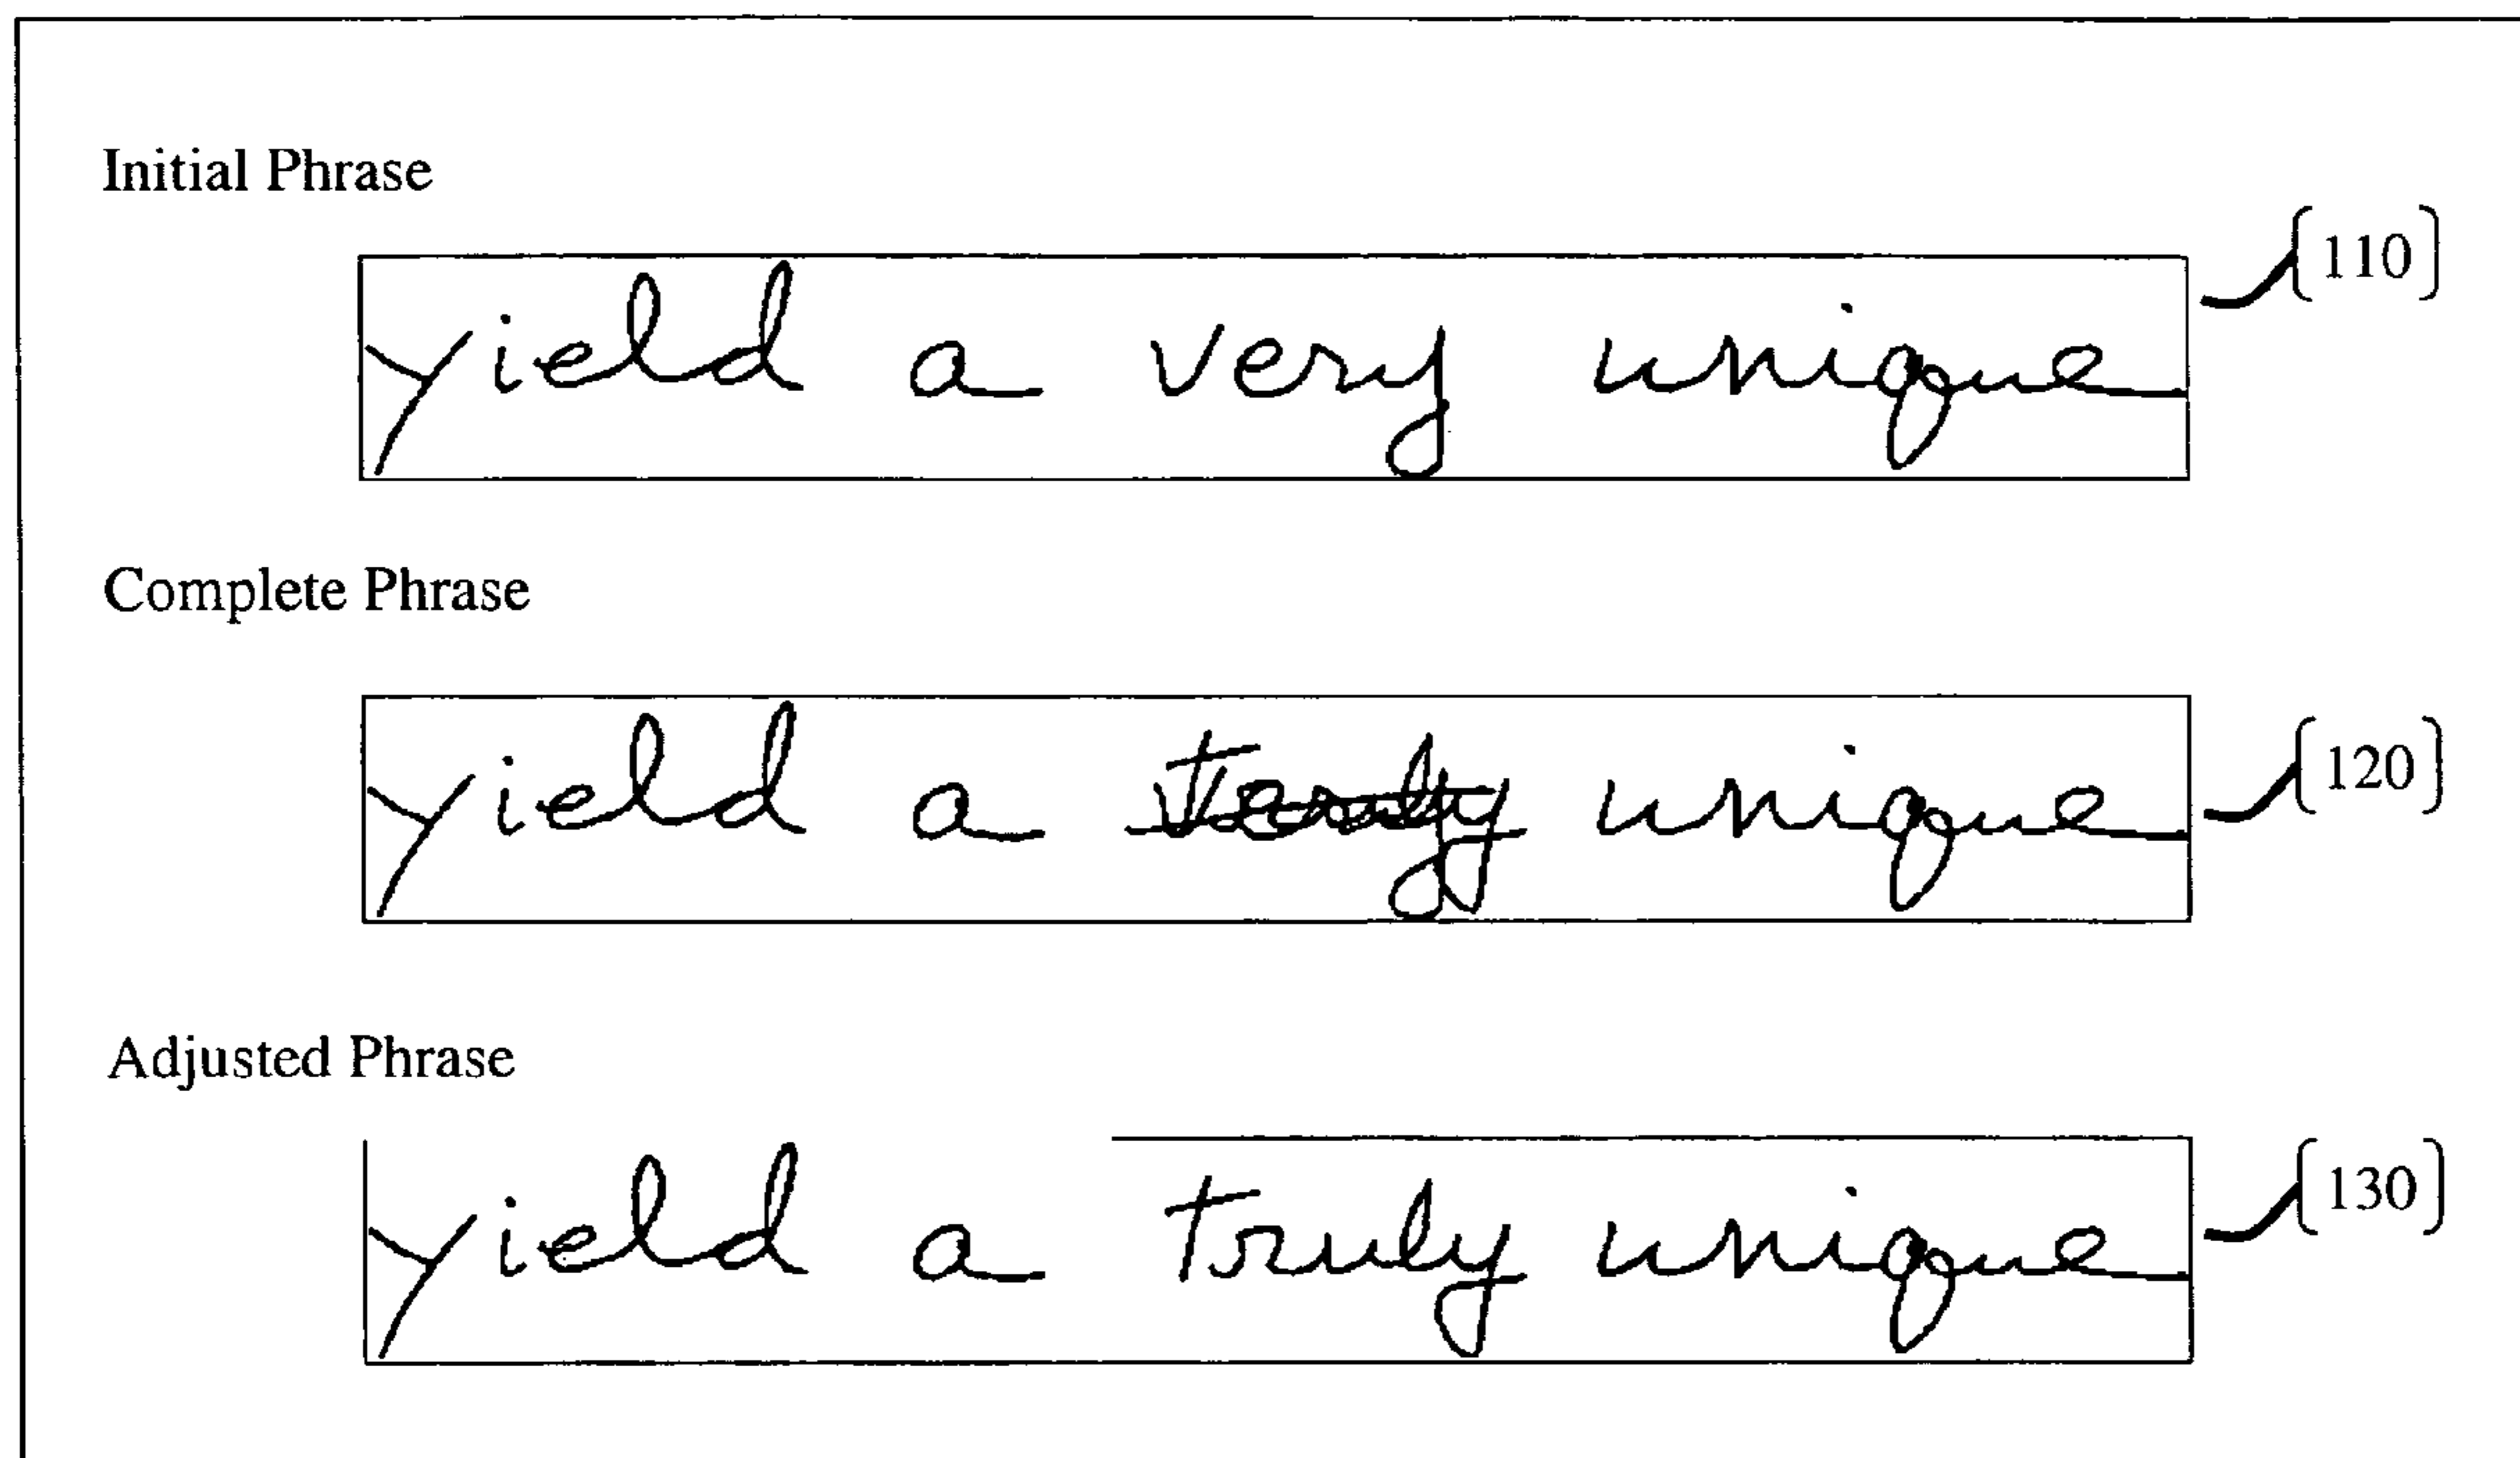 Initial Phrase
[110]
yield a very unique
Complete Phrase
[120]
yield a unique
Adjusted Phrase
[130]
yield a truly unique